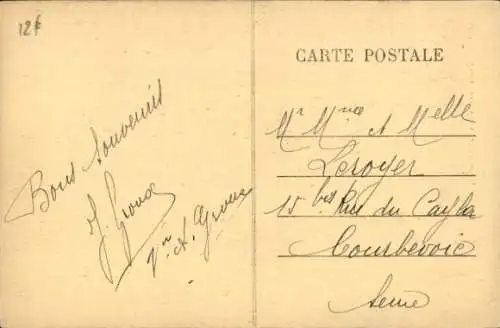 12 F
Bons Souvenirs
CARTE POSTALE
Mr Mme et Melle
Leroyer
15 bis Rue du Cayla
Courbevoie
Seine